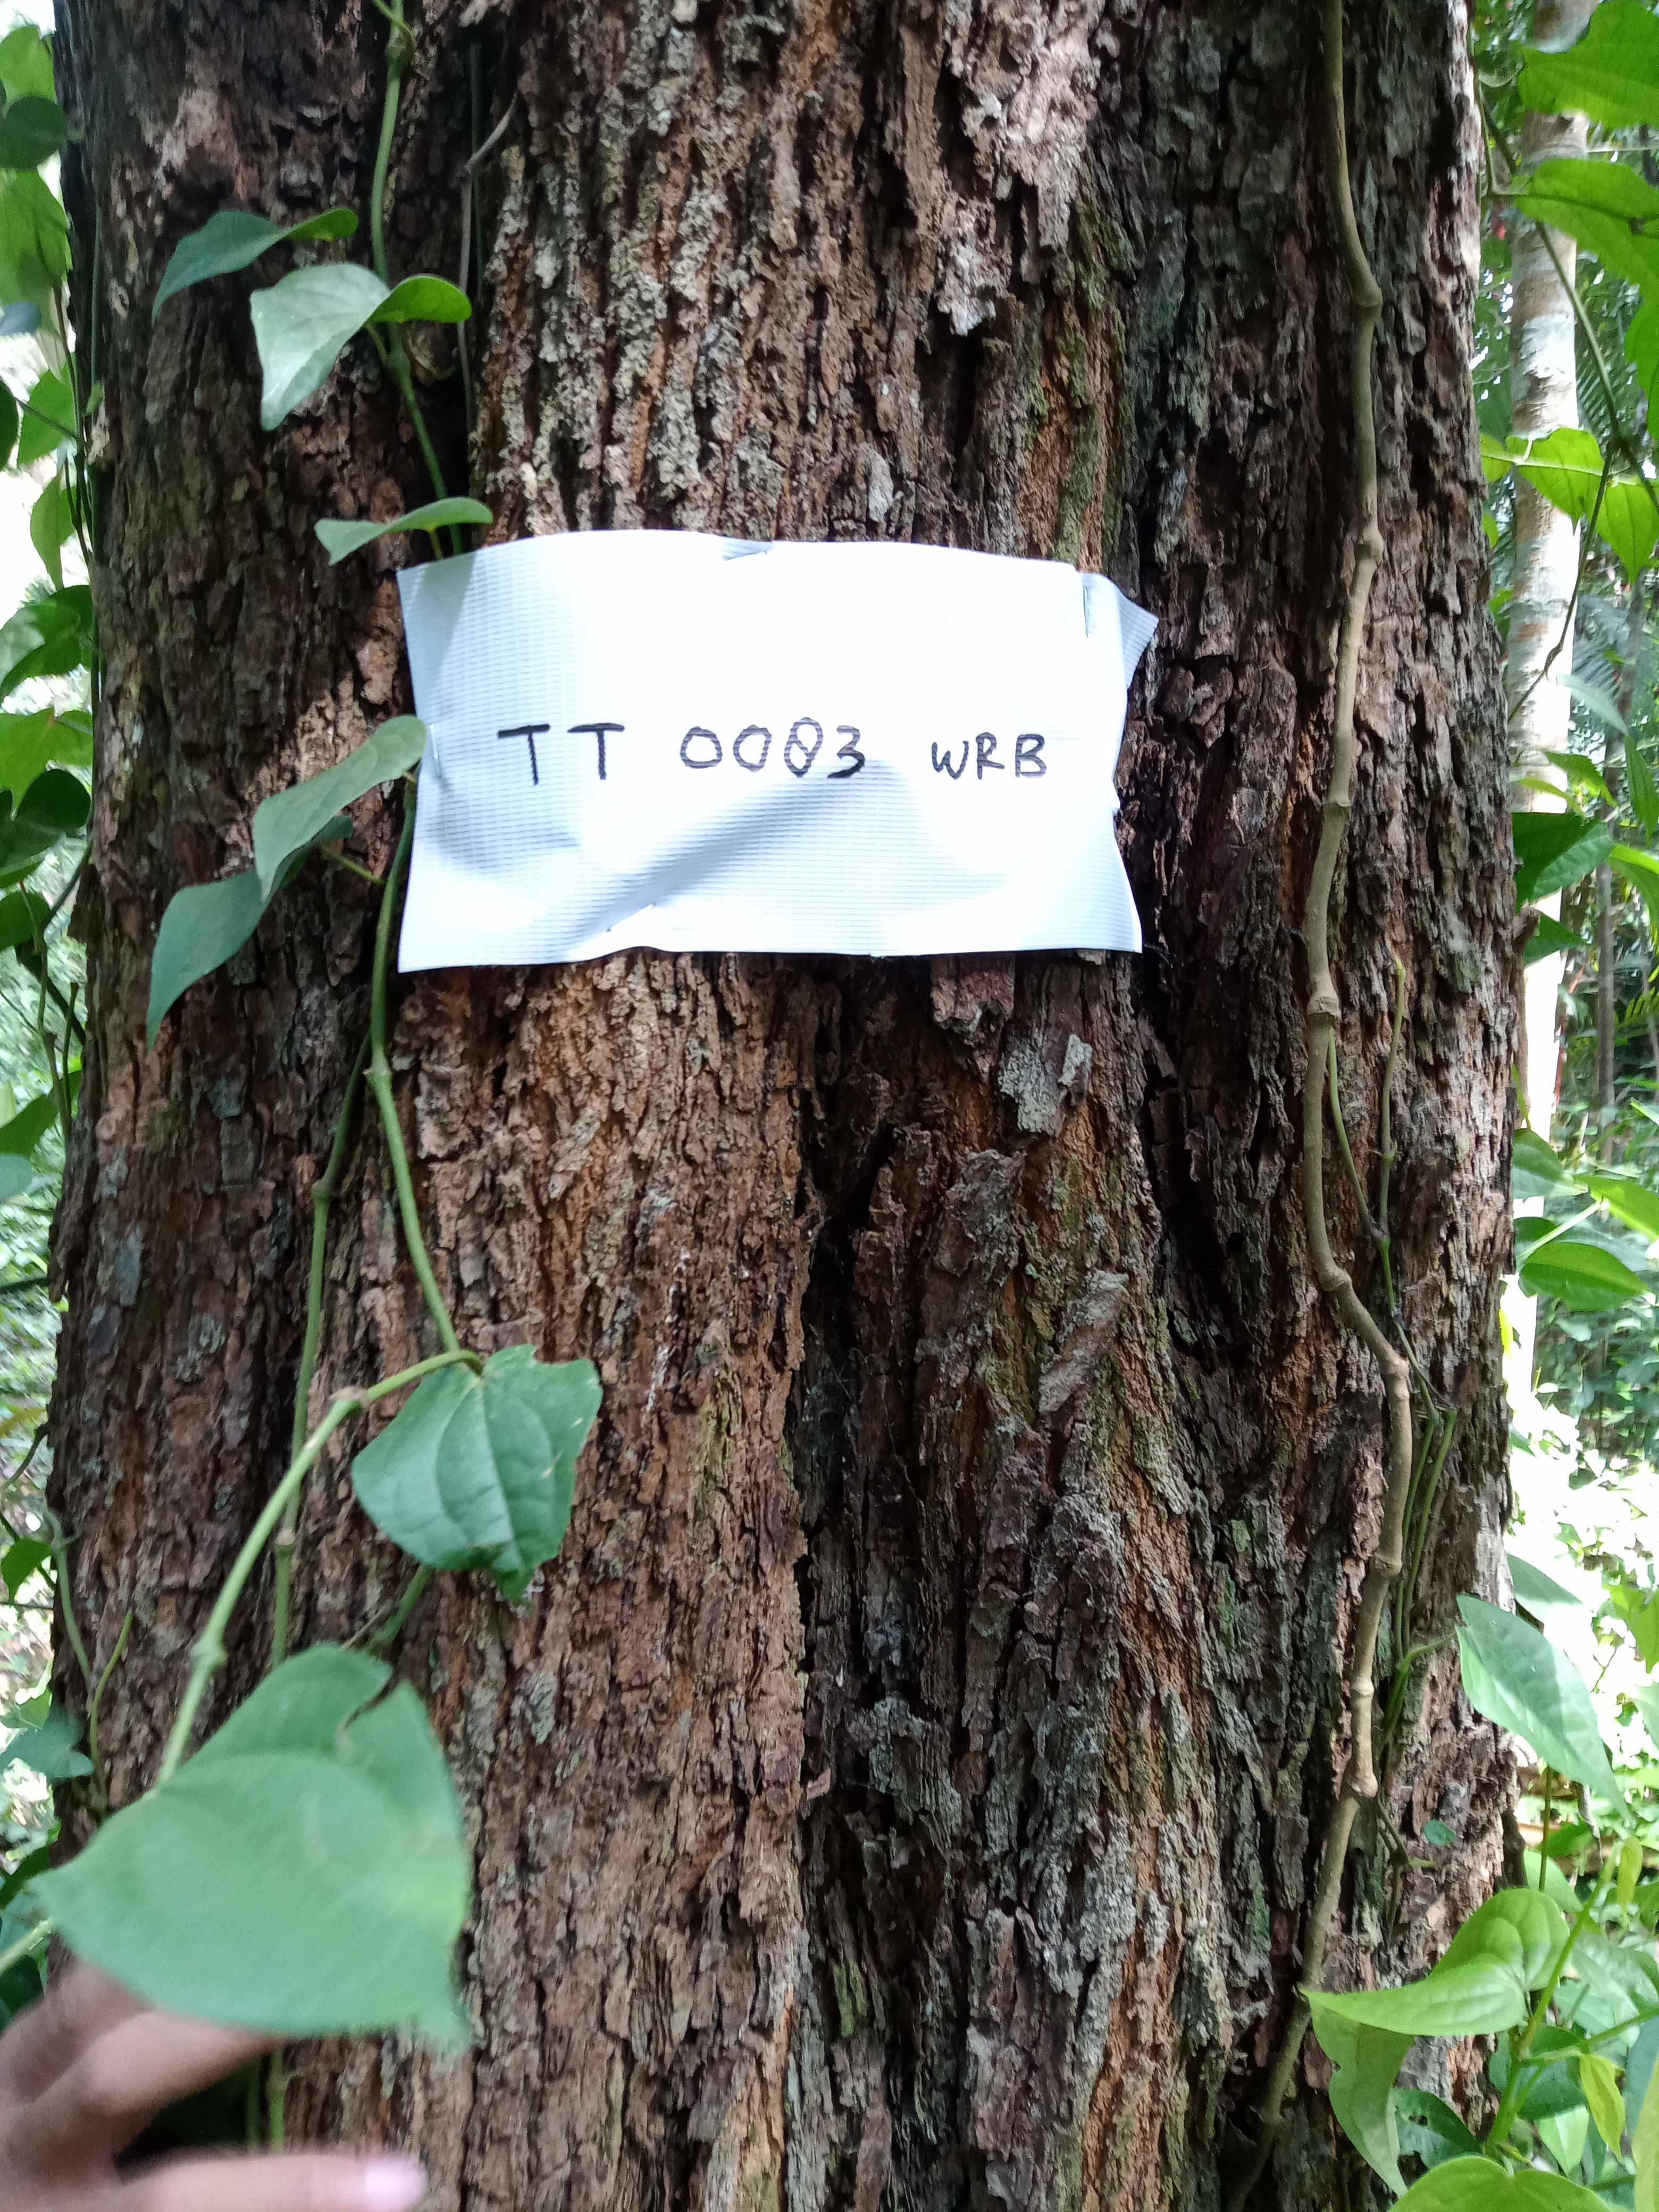 TT 0083 WRB